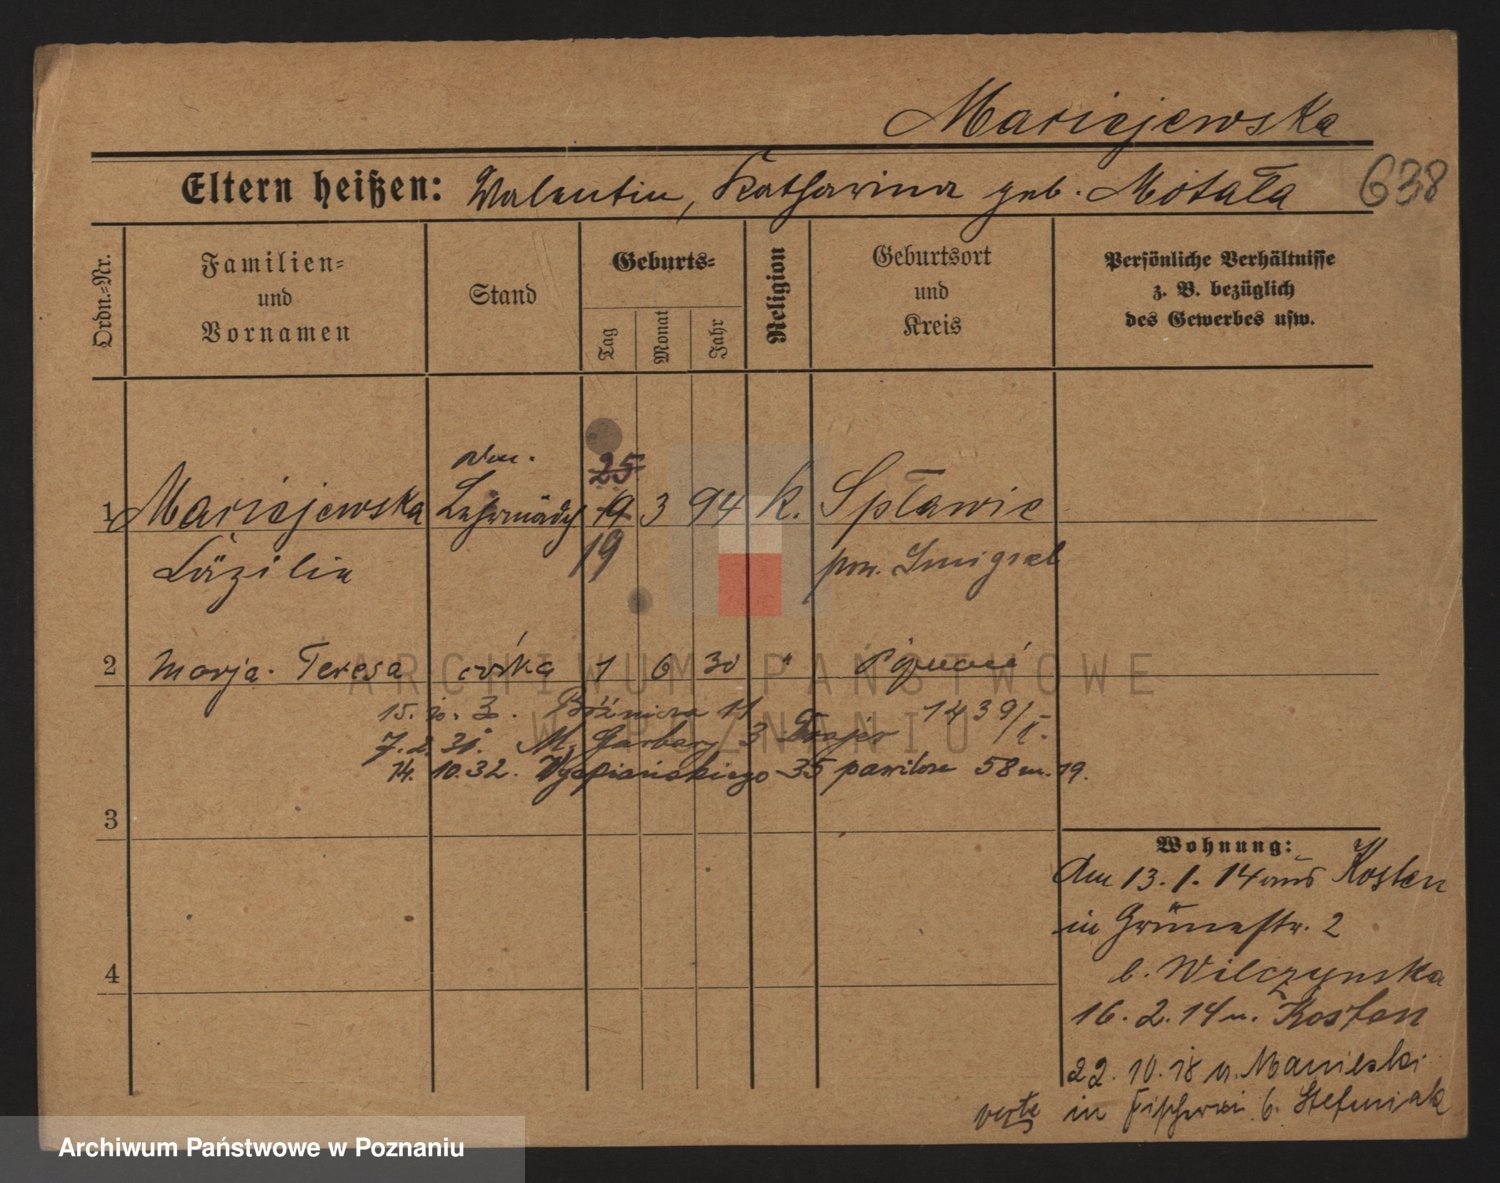 Maciejewska
Eltern heißen: Walentin, Katharina geb. Motała 638
Ordn.=Nr.
Familien=
und
Vornamen
Stand
Geburts=
Tag
Monat
Jahr
Religion
Geburtsort
und
Kreis
Persönliche Verhältnisse
z. B. bezüglich
des Gewerbes usw.
25
1 Maciejewska Lehrmädch 19 3 94 k. Spławie
Cäzilia 19 pow. Śmigiel
2 Marja Teresa córka 1 6 30 " Poznań
15. 3. Bóżnicza 11 1439/I.
7. 2. 31. M. Garbary 3
14. 10. 32. Wyspiańskiego 35 pawilon 58 m. 19.
3
4
Wohnung:
Am 13. 1. 14 aus Kosten
in Grünestr. 2
b. Wilczynska
16. 2. 14 n. Kosten
22. 10. 18 v.
verte in Fischerei b. Stefaniak
ARCHIWUM PAŃSTWOWE
W POZNANIU
Archiwum Państwowe w Poznaniu